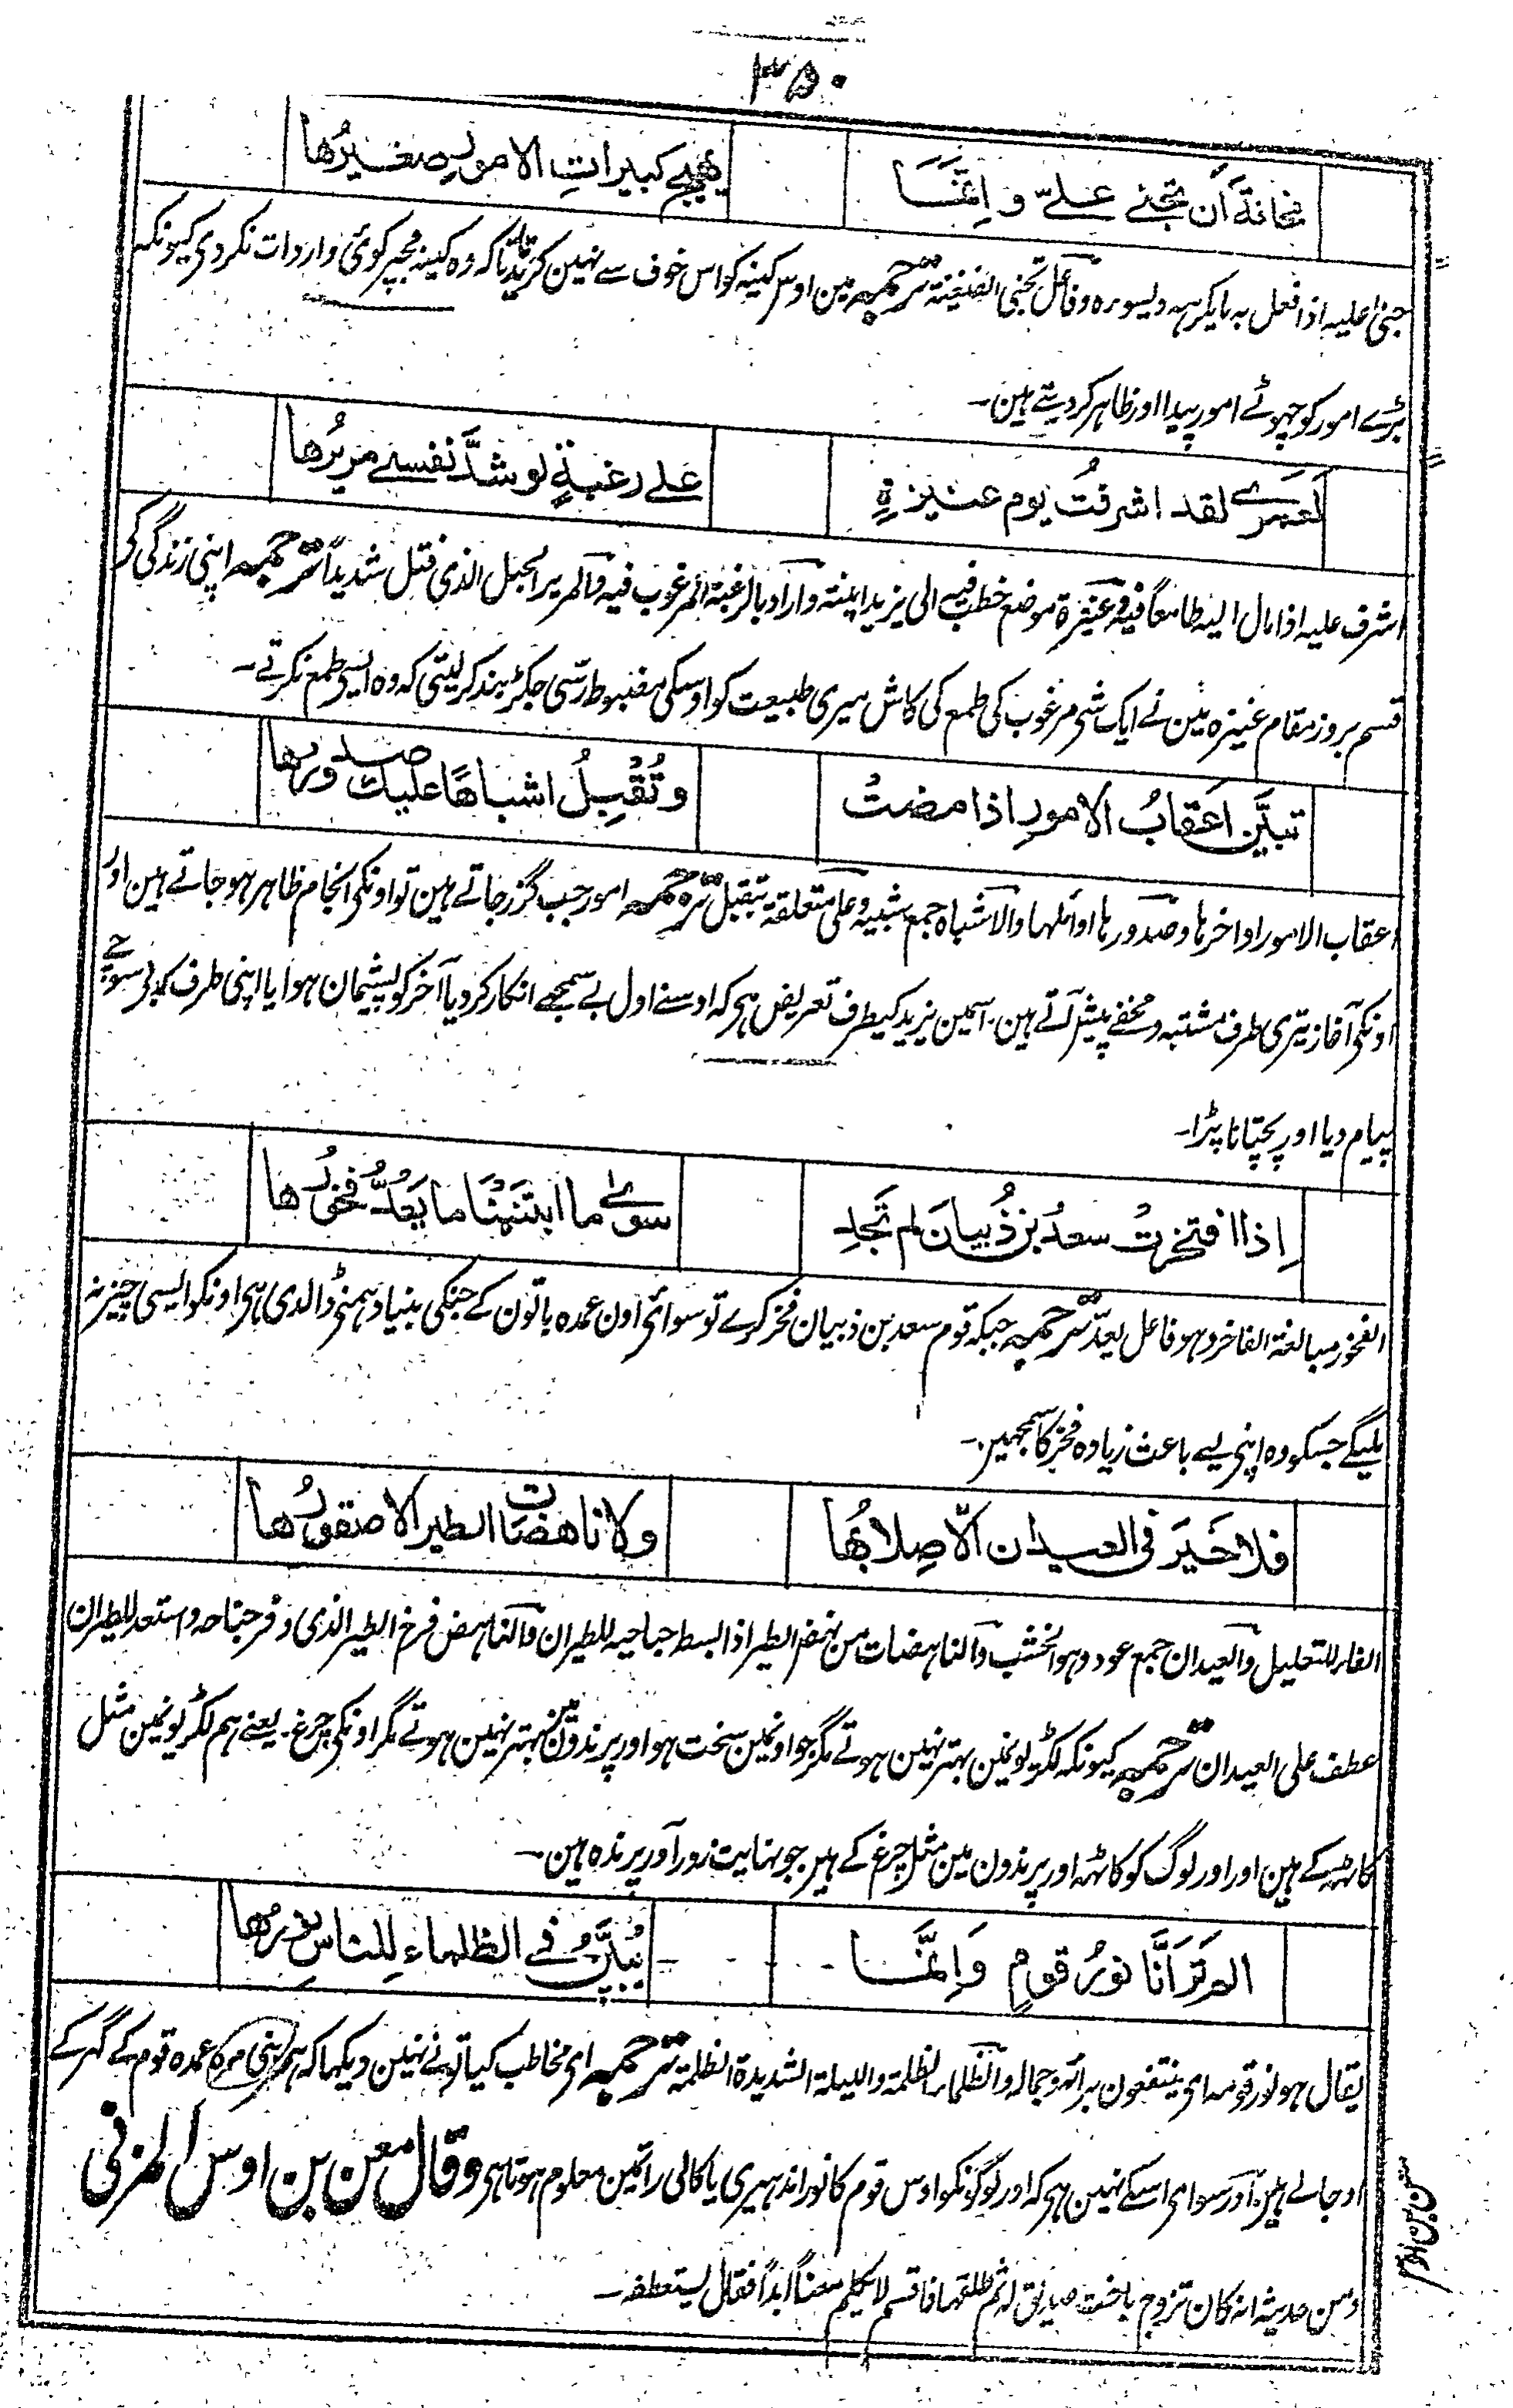 ۳۵۰
مخافةَ اَنْ تجنے علےّ و اِنَّمَا يهيج كبيراتِ الامورِ صغيرُها
جنیٰ علیہ اذا فعل بہ ما یکرہہ ویسوءہ وفاعل تجنی الضغینۃ ترجمہ مین اوس کینہ کو اس خوف سے نہین کریدتا کہ وہ کینہ مجہپر کوئی واردات نکردی کیونکہ
بڑے امور کو چہوٹے امور پیدا اور ظاہر کردیتے ہین۔
لَعَمرے لقد اشرفتُ يوم عنيزةٍ علے رغبةٍ لو شدَّ نفسے مريرُها
اشرف علیہ اذا مال الیہ طامعاً فیہ وعنیزۃ موضع خطب فیہ الی یزید ابنتہ واراد بالرغبۃ المرغوب فیہ والمریر الحبل الذی فتل شدیداً ترجمہ اپنی زندگی کی
قسم بروز مقام عنیزہ مین نے ایک شی مرغوب کی طمع کی کاش میری طبیعت کو اوسکی مضبوط رسّی جکڑ بند کرلیتی کہ وہ ایسی طمع نکرتے۔
تبيَّن اَعقابُ الامورِ اذا مضتْ وتُقبِلُ اشباهًا عليك صدورها
اعقاب الامور اواخرہا وصدورہا اوائلہا والاشباہ جمع شبیہ وعلیٰ متعلقۃ بتقبل ترجمہ امور جب گزر جاتے ہین تو اونکی انجام ظاہر ہوجاتے ہین اور
اونکی آغاز تیری طرف مشتبہ و مخفے پیش آتے ہین۔ اسمین یزید کیطرف تعریض ہی کہ اوسنے اول بے سمجھے انکار کردیا آخر کو پشیمان ہوا یا اپنی طرف کہ بی سوچے
پیام دیا اور پچتانا پڑا۔
اِذا افتخرتْ سعدُ بن ذُبيانَ لم تَجِدِ سوےٰ ما ابتنينا ما يَعُدُّ فخورُها
الفخور مبالغۃ الفاخر وہو فاعل یعدّ ترجمہ جبکہ قوم سعد بن ذبیان فخر کرے تو سوائی اون عمدہ باتون کے جنکی بنیاد ہمنے ڈالدی ہی اونکو ایسی چیز نہ
ملیگے جسکو وہ اپنی لیے باعث زیادہ فخر کا سمجہین۔
فلا خَيرَ فى العيدان الّا صِلابُها ولا ناهضات الطير الا صقورُها
الفاء للتعلیل والعیدان جمع عود وہو الخشب والناہضات من نہض الطیر اذا بسط جناحیہ للطیران والناہض فرخ الطیر الذی وفر جناحہ واستعد للطیران
عطف علی العیدان ترجمہ کیونکہ لکڑیونمین بہتر نہین ہوتے مگر جو اونمین سخت ہو اور پرندونمین بہتر نہین ہوتے مگر اونکی چرغ۔ یعنے ہم لکڑیونمین مثل
کاٹہہ کے ہین اور اور لوگ کو کاٹہہ اور پرندون مین مثل چرغ کے ہین جو نہایت زور آور پرندہ ہین۔
الم تَرَ اَنَّا نورُ قومٍ وَاِنَّمَا يُبيِّنُ فے الظلماءِ لِلناسِ نورُها
یقال ہو نور قومہ ای ینتفعون برائہ وجمالہ والظلماء الظلمۃ واللیلۃ الشدیدۃ الظلمۃ ترجمہ ای مخاطب کیا تونے نہین دیکہا کہ ہم اپنی عمدہ قوم کے گہر کے
اوجالے ہین اور سوای اسکے نہین ہی کہ اور لوگونکو اوس قوم کا نور اندہیری یا کالی راتمین معلوم ہوتا ہی وقال معن بن اوس المزنی
ومن حدیثہ انہ کان تزوج باخت صدیق لہ ثم طلقہا فاقسم لا یکلم معناً ابداً فقال یستعطفہ۔
معن بن اوس